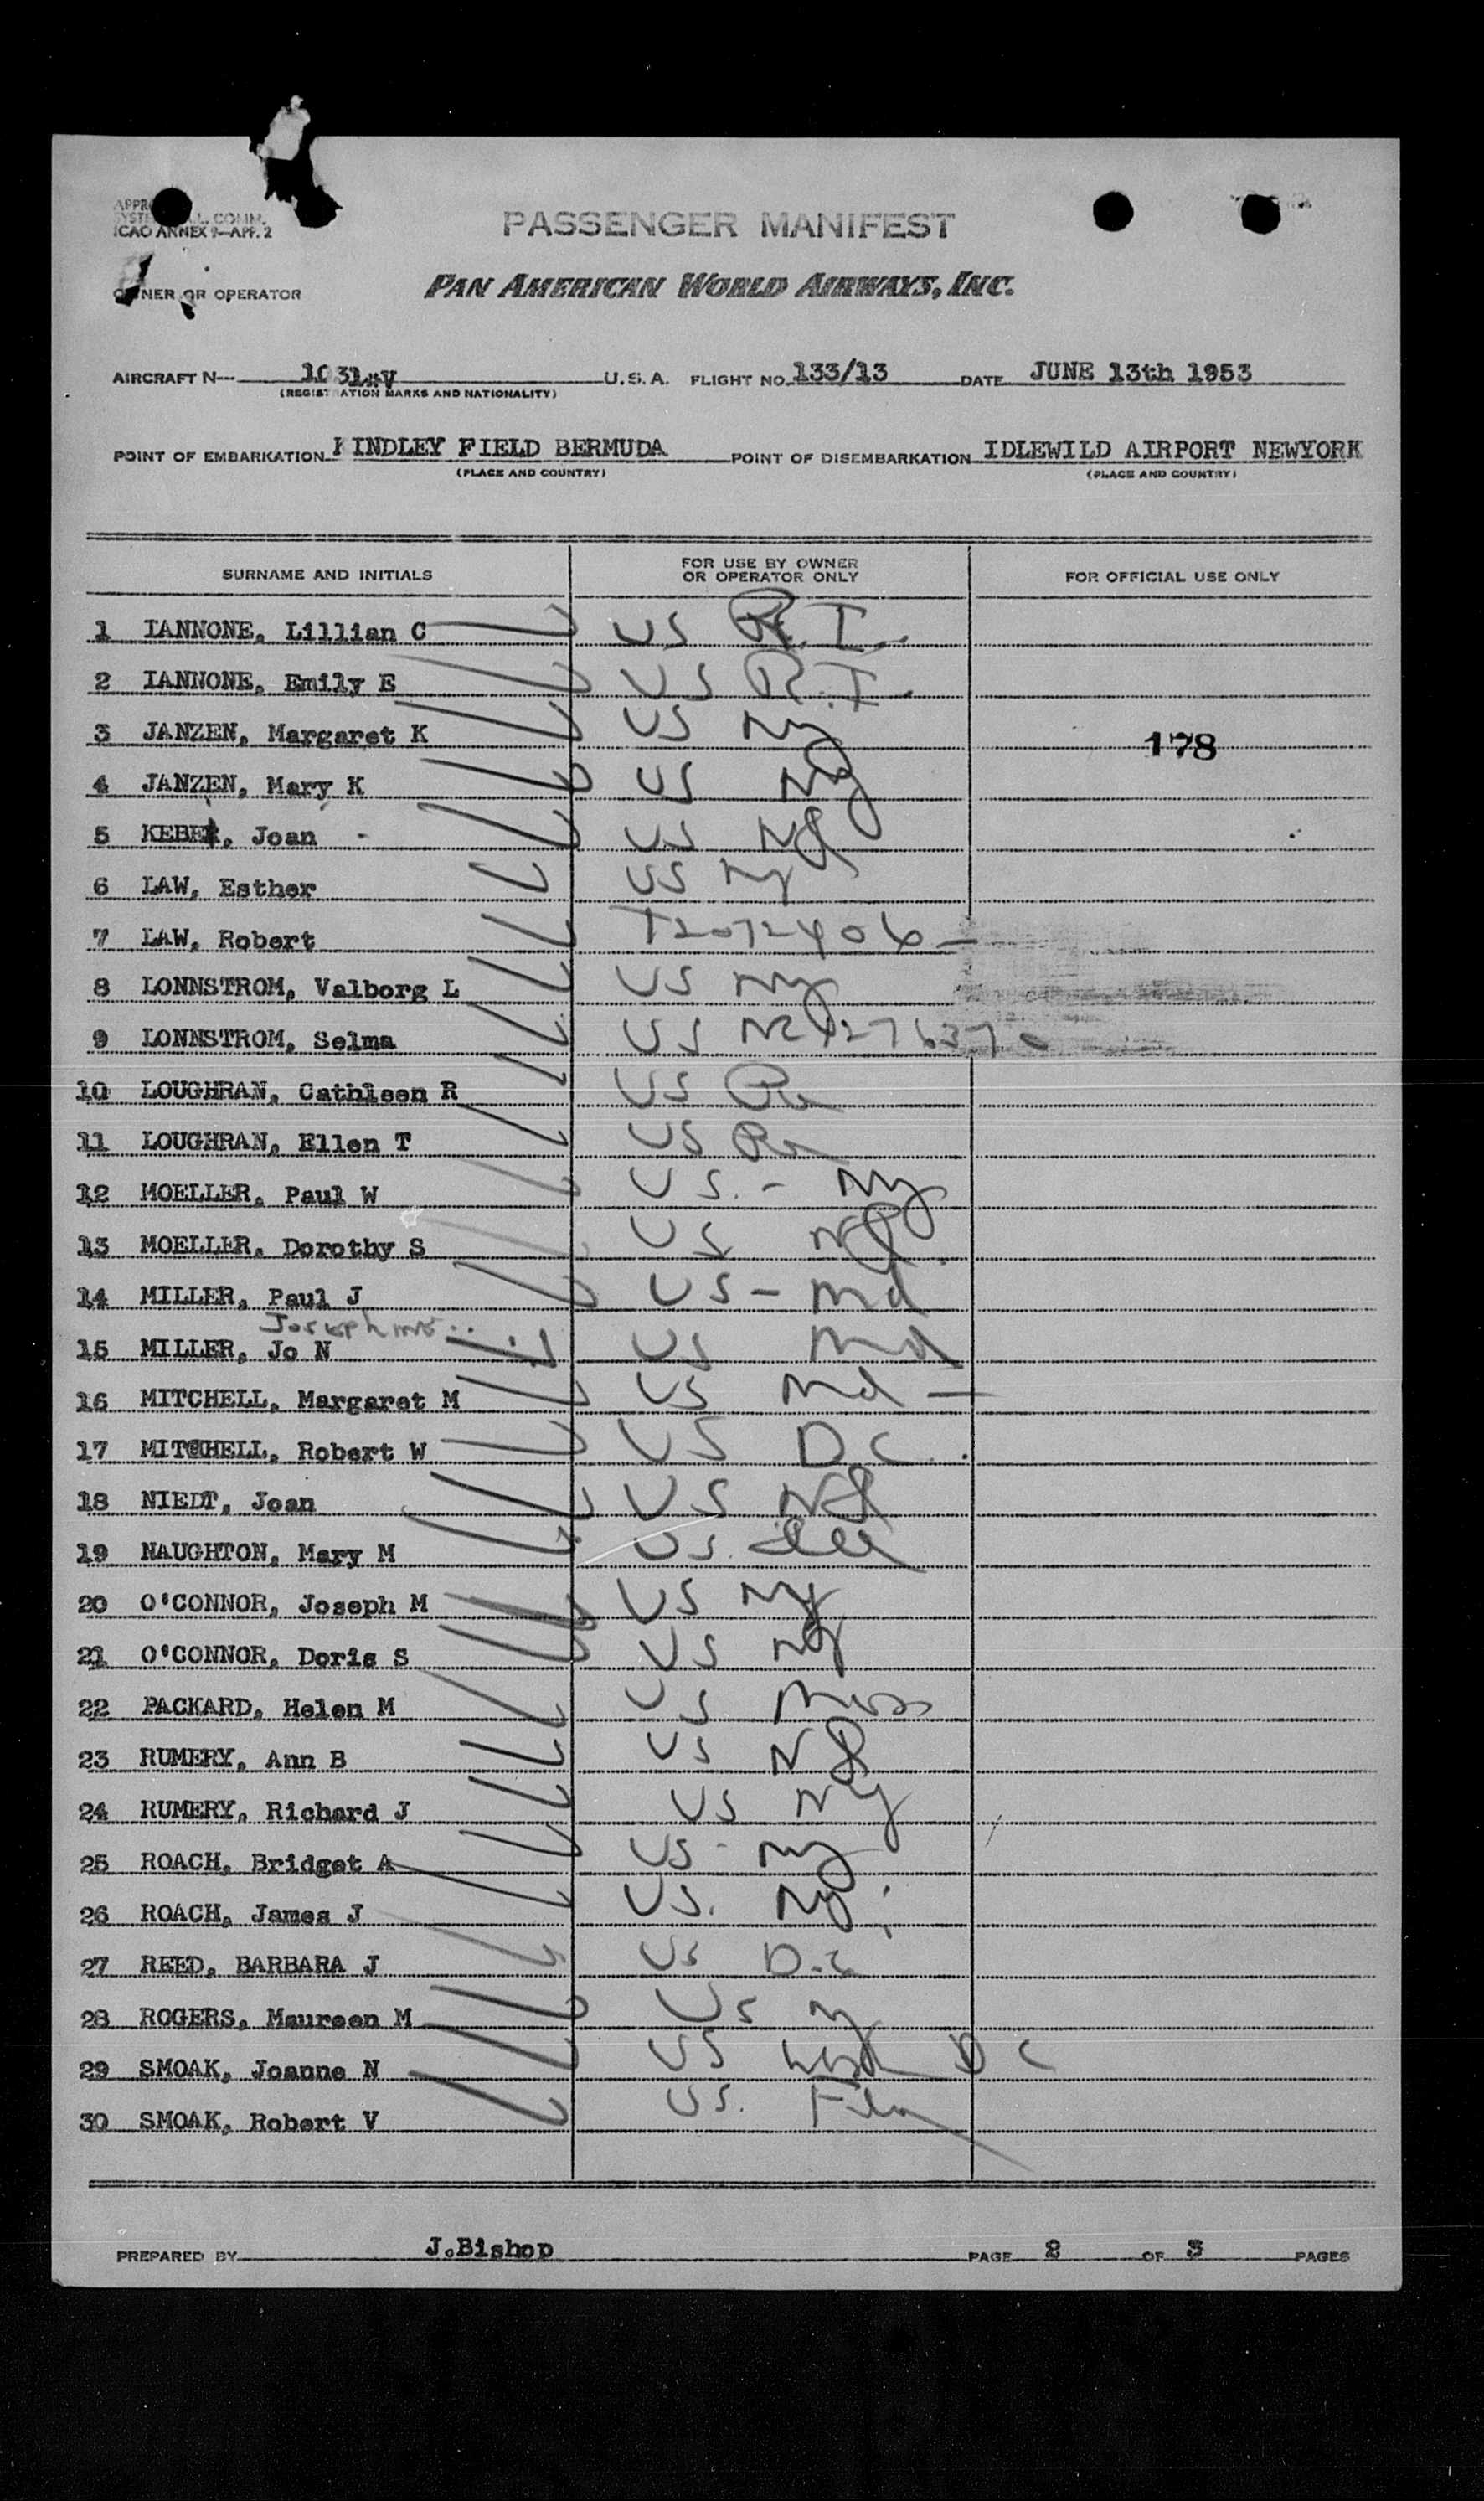 ICAO ANNEX 9—APP. 2
PASSENGER MANIFEST
OWNER OR OPERATOR
PAN AMERICAN WORLD AIRWAYS, INC.
AIRCRAFT N-- U.S.A. FLIGHT NO. 133/13 DATE JUNE 13th 1953
(REGISTRATION MARKS AND NATIONALITY)
POINT OF EMBARKATION KINDLEY FIELD BERMUDA POINT OF DISEMBARKATION IDLEWILD AIRPORT NEWYORK
(PLACE AND COUNTRY) (PLACE AND COUNTRY)
SURNAME AND INITIALS FOR USE BY OWNER OR OPERATOR ONLY FOR OFFICIAL USE ONLY
1 IANNONE, Lillian C US R.I.
2 IANNONE, Emily E US R.I.
3 JANZEN, Margaret K US Ny 178
4 JANZEN, Mary K US Ny
5 Joan US NJ
6 LAW, Esther US Ny
7 LAW, Robert
8 LONNSTROM, Valborg L US Ny
9 LONNSTROM, Selma US
10 LOUGHRAN, Cathleen R US Pa
11 LOUGHRAN, Ellen T US Pa
12 MOELLER, Paul W US. - Ny
13 MOELLER, Dorothy S US NJ
14 MILLER, Paul J US - Md
Josephine
15 MILLER, Jo N US Md
16 MITCHELL, Margaret M US Md —
17 MITCHELL, Robert W US D.C.
18 NIEDT, Joan US NJ
19 NAUGHTON, Mary M US. Ill
20 O'CONNOR, Joseph M US Ny
21 O'CONNOR, Doris S US Ny
22 PACKARD, Helen M US Mass
23 RUMERY, Ann B US NJ
24 RUMERY, Richard J US NY
25 ROACH, Bridget A US - Ny
26 ROACH, James J US. Ny
27 REED, BARBARA J US D.C.
28 ROGERS, Maureen M US Ny
29 SMOAK, Joanne N US Wash D C
30 SMOAK, Robert V US. Fla
PREPARED BY J.Bishop PAGE 2 OF 3 PAGES